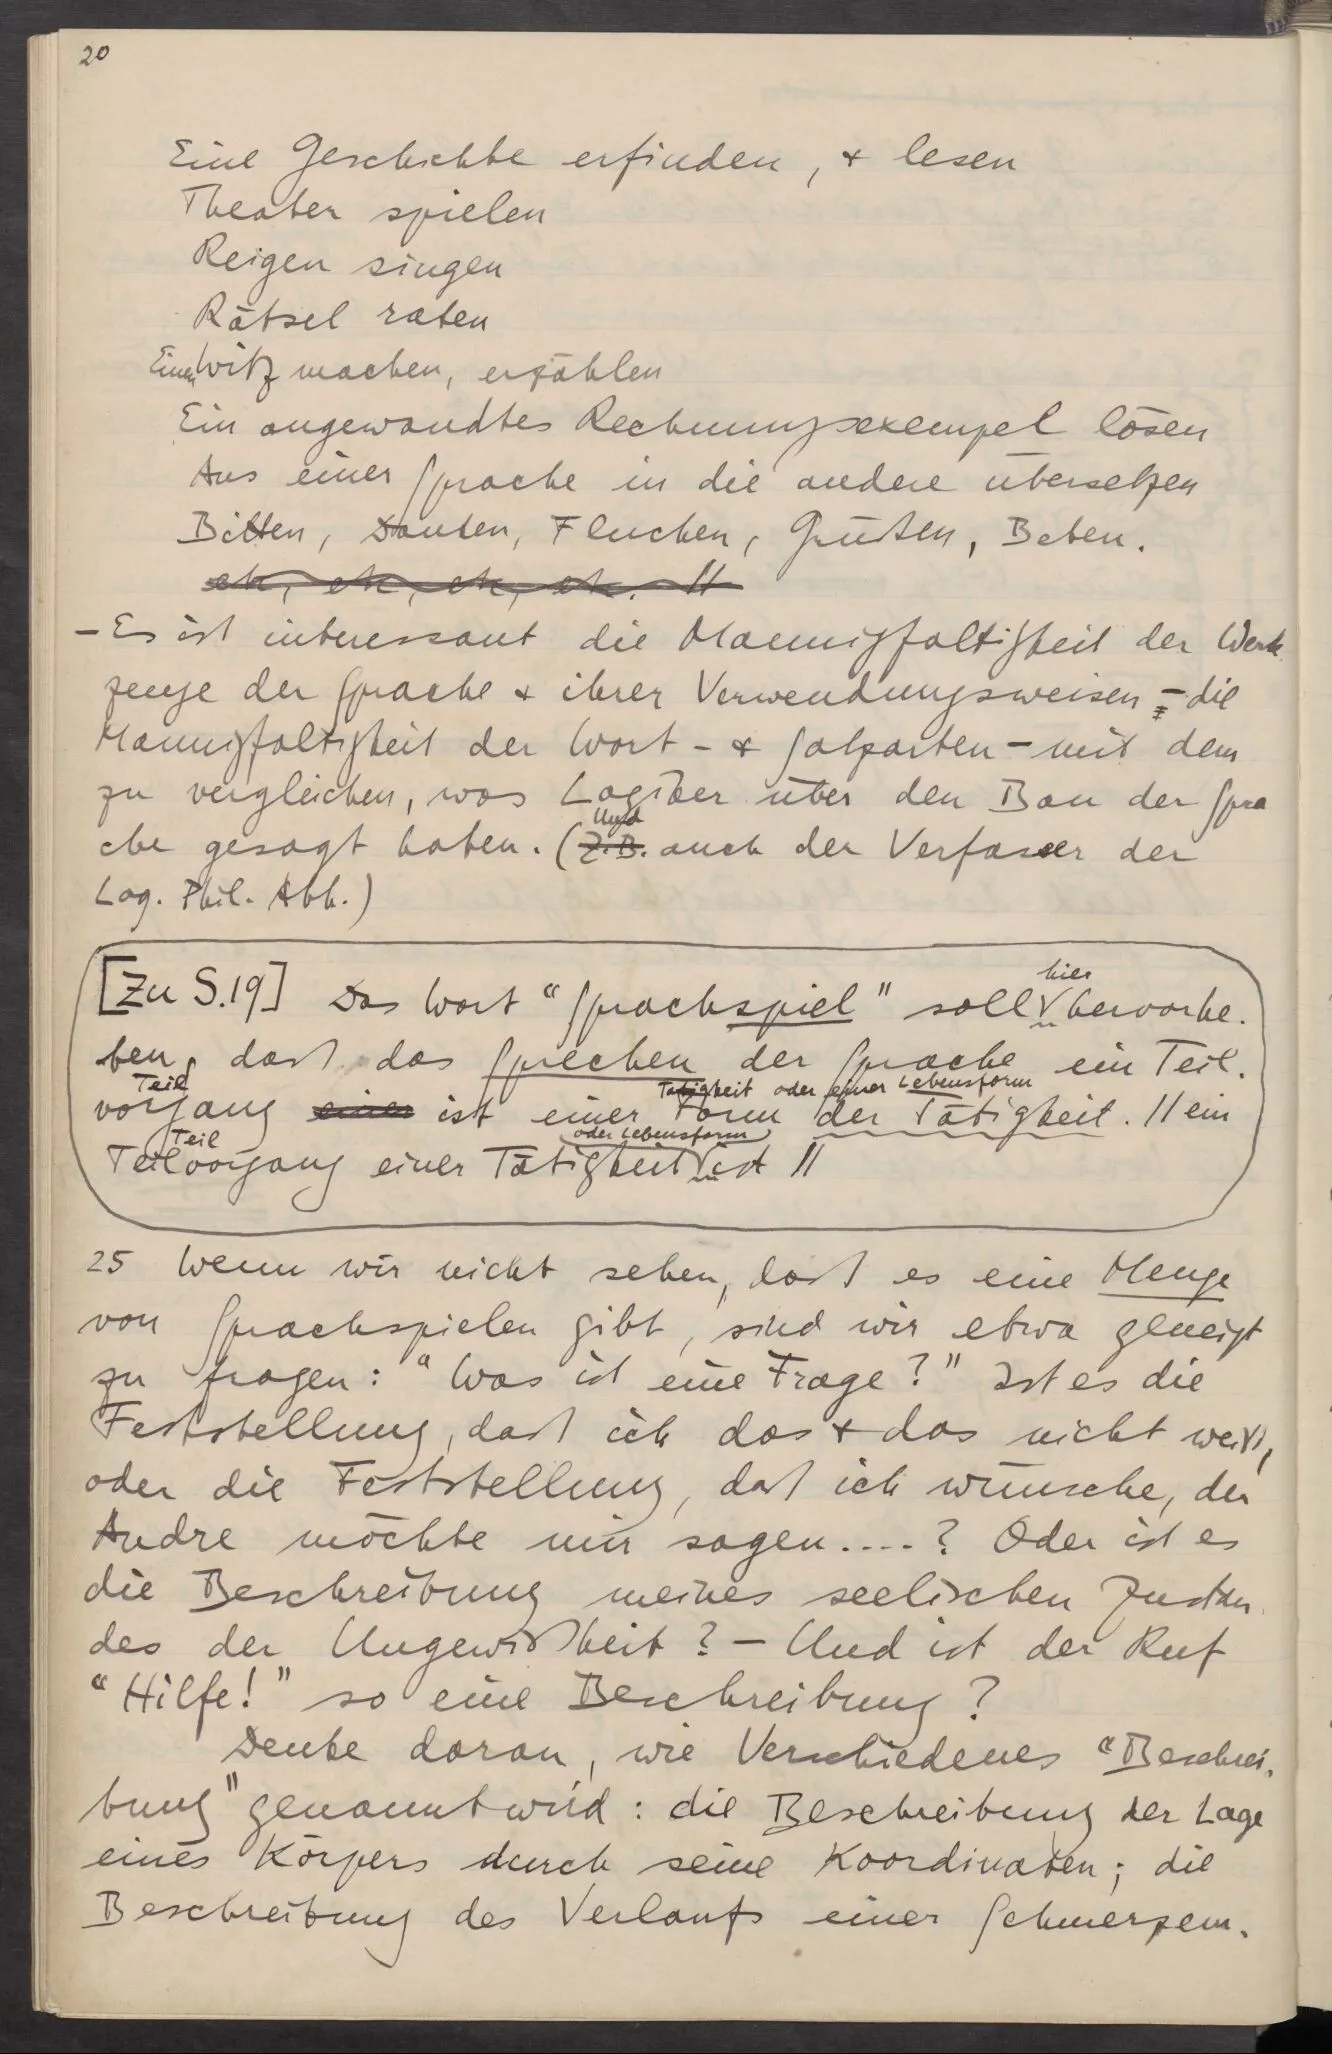 20
Eine Geschichte erfinden, & lesen
Theater spielen
Reigen singen
Rätsel raten
Einen Witz machen, erzählen
Ein angewandtes Rechnungsexempel lösen
Aus einer Sprache in die andere übersetzen
Bitten, Danken, Fluchen, Grüßen, Beten.
etc, etc, etc, etc. //
– Es ist interessant die Mannigfaltigkeit der Werk
zeuge der Sprache & ihrer Verwendungsweisen – die
Mannigfaltigkeit der Wort- & Satzarten – mit dem
zu vergleichen, was Logiker über den Bau der Spra
che gesagt haben. (Z.B. auch der Verfasser der
Und
Log. Phil. Abh.)
hier
[Zu S.19] Das Wort "Sprachspiel" soll hervorhe-
ben, daß das Sprechen der Sprache ein Teil-
Teil Tätigkeit oder einer Lebensform
vorgang einer ist einer Form der Tätigkeit. // ein
Teil oder Lebensform
Teilvorgang einer Tätigkeit ist //
25 Wenn wir nicht sehen, daß es eine Menge
von Sprachspielen gibt, sind wir etwa geneigt
zu fragen: "Was ist eine Frage?" Ist es die
Feststellung, daß ich das & das nicht weiß,
oder die Feststellung, daß ich wünsche, der
Andre möchte mir sagen....? Oder ist es
die Beschreibung meines seelischen Zustan-
des der Ungewißheit? – Und ist der Ruf
"Hilfe!" so eine Beschreibung?
Denke daran, wie Verschiedenes "Beschrei-
bung" genannt wird: die Beschreibung der Lage
eines Körpers durch seine Koordinaten; die
Beschreibung des Verlaufs einer Schmerzem-